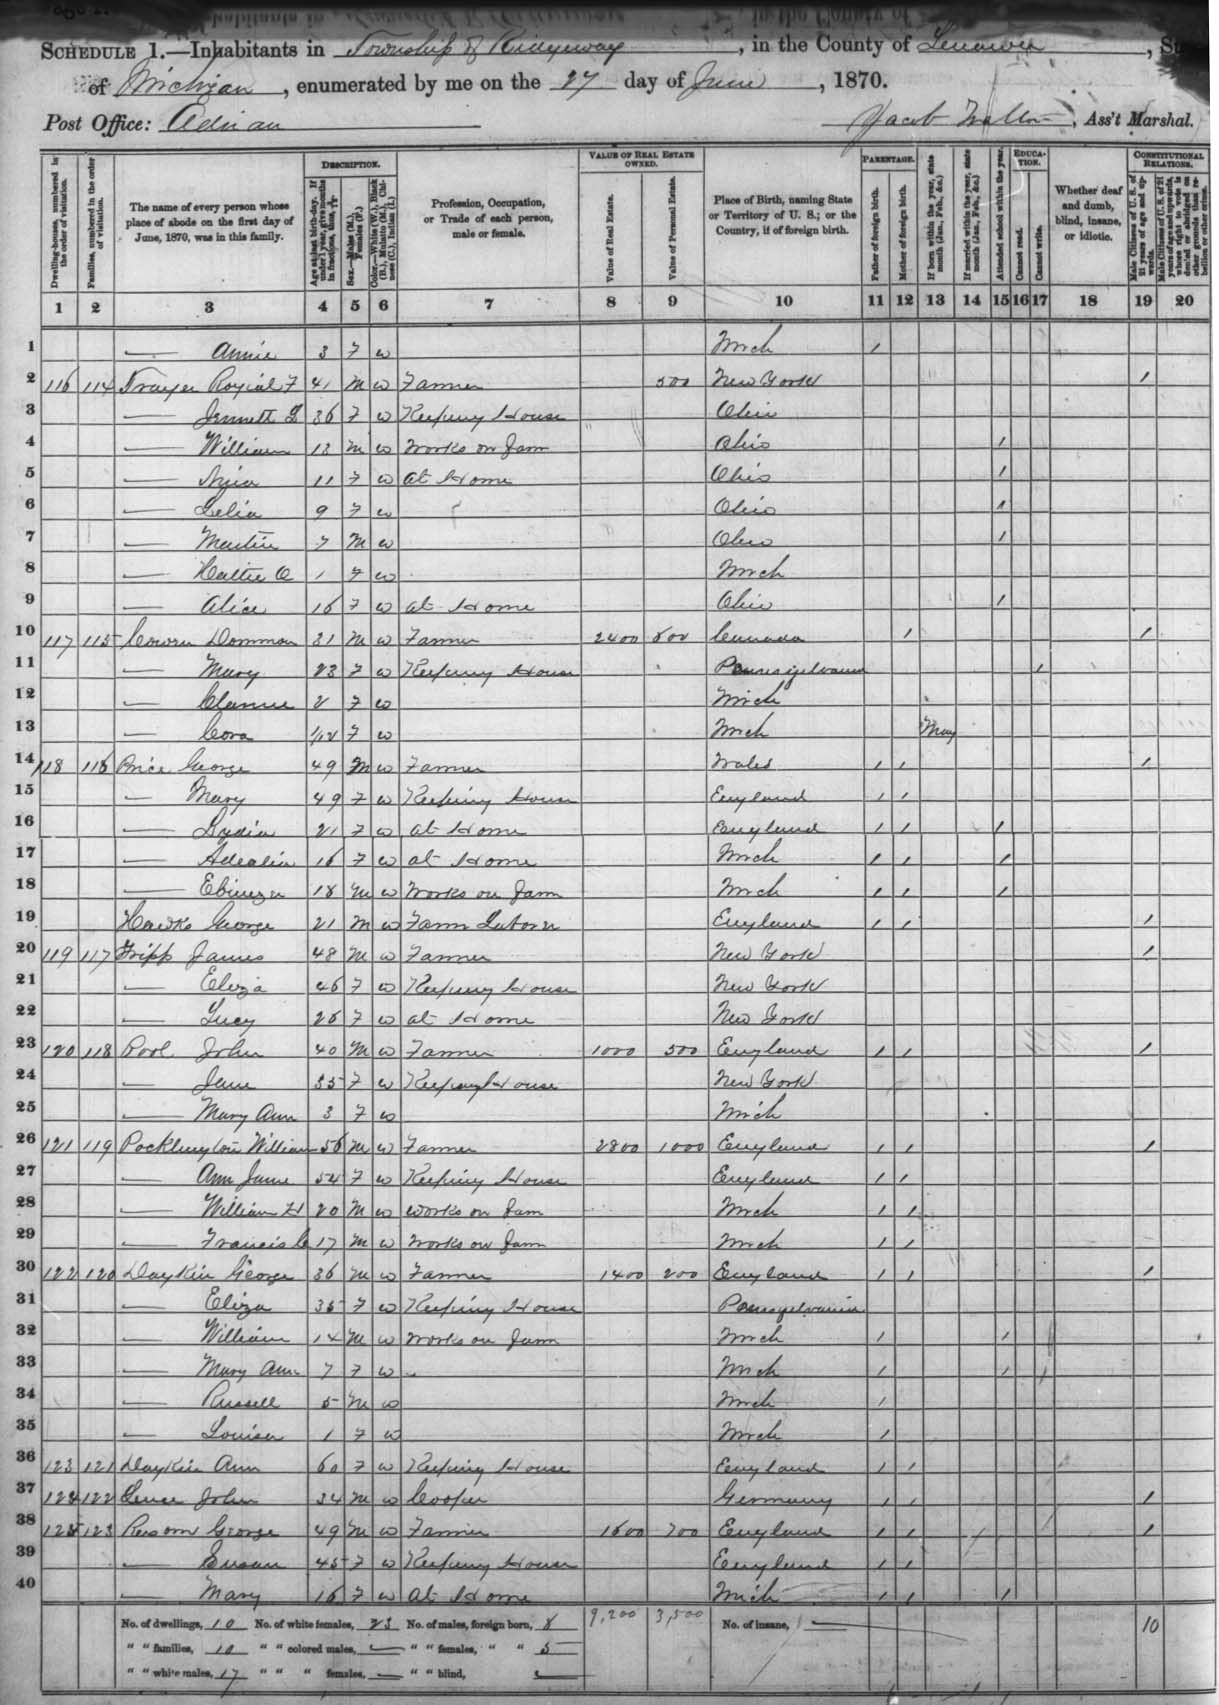 SCHEDULE 1.—Inhabitants in Township of Ridgeway, in the County of Lenawee, St
of Michigan, enumerated by me on the 27 day of June, 1870.
Post Office: Adrian Jacob Walton, Ass't Marshal.
Dwelling-houses, numbered in the order of visitation.
Families, numbered in the order of visitation.
The name of every person whose place of abode on the first day of June, 1870, was in this family.
DESCRIPTION.
Age at last birth-day. If under 1 year, give months in fractions, thus, 3/12
Sex.—Males (M.), Females (F.)
Color.—White (W.), Black (B.), Mulatto (M.), Chinese (C.), Indian (I.)
Profession, Occupation, or Trade of each person, male or female.
VALUE OF REAL ESTATE OWNED.
Value of Real Estate.
Value of Personal Estate.
Place of Birth, naming State or Territory of U. S.; or the Country, if of foreign birth.
PARENTAGE.
Father of foreign birth.
Mother of foreign birth.
If born within the year, state month (Jan., Feb., &c.)
If married within the year, state month (Jan., Feb., &c.)
Attended school within the year.
EDUCATION.
Cannot read.
Cannot write.
Whether deaf and dumb, blind, insane, or idiotic.
CONSTITUTIONAL RELATIONS.
Male Citizens of U. S. of 21 years of age and upwards.
Male Citizens of U. S. of 21 years of age and upwards, whose right to vote is denied or abridged on other grounds than rebellion or other crime.
1 2 3 4 5 6 7 8 9 10 11 12 13 14 15 16 17 18 19 20
1 — Annie 3 F W Mich /
2 116 114 Royial F 41 M W Farmer 500 New York /
3 — Jennett 36 F W Keeping House Ohio
4 — William 13 M W Works on Farm Ohio /
5 — 11 F W At Home Ohio /
6 — Lelia 9 F W Ohio /
7 — Martin 7 M W Ohio /
8 — Hattie 1 F W Mich
9 — Alice 16 F W At Home Ohio /
10 117 115 31 M W Farmer 2400 600 Canada / /
11 — Mary 23 F W Keeping House Pennsylvania /
12 — 2 F W Mich
13 — Cora 1/12 F W Mich May
14 118 116 Price George 49 M W Farmer Wales / / /
15 — Mary 49 F W Keeping House England / /
16 — Lydia 21 F W At Home England / / /
17 — Adealia 16 F W At Home Mich / / /
18 — Ebinezer 18 M W Works on Farm Mich / / /
19 Hawks George 21 M W Farm Laborer England / / /
20 119 117 Tripp James 48 M W Farmer New York /
21 — Eliza 46 F W Keeping House New York
22 — Lucy 26 F W At Home New York
23 120 118 Pool John 40 M W Farmer 1000 500 England / / /
24 — Jane 35 F W Keeping House New York
25 — Mary Ann 3 F W Mich
26 121 119 Pocklington William 56 M W Farmer 2800 1000 England / / /
27 — Ann Jane 54 F W Keeping House England / /
28 — William H 20 M W Works on Farm Mich / /
29 — Francis 17 M W Works on Farm Mich / /
30 122 120 Daykin George 36 M W Farmer 1400 200 England / / /
31 — Eliza 35 F W Keeping House Pennsylvania
32 — William 14 M W Works on Farm Mich / /
33 — Mary Ann 7 F W Mich / / /
34 — Russell 5 M W Mich /
35 — Louisa 1 F W Mich /
36 123 121 Daykin Ann 60 F W Keeping House England / /
37 124 122 John 34 M W Cooper Germany / / /
38 125 123 George 49 M W Farmer 1600 700 England / / / /
39 — Susan 45 F W Keeping House England / /
40 — Mary 16 F W At Home Mich / / /
No. of dwellings, 10 No. of white females, 23 No. of males, foreign born, 8 9,200 3,500 No. of insane, — 10
" " families, 10 " " colored males, — " " females, " " 5
" " white males, 17 " " " females, — " " blind, —